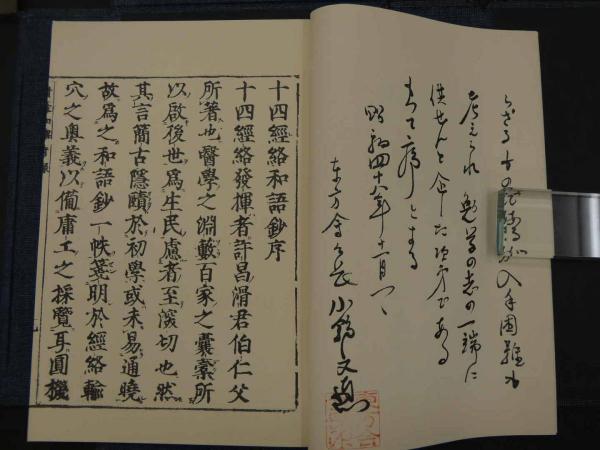 考へられ 勉学の志の一端に
供せんと企した次第である
もって序とする
昭和四十八年十一月
東方会々長 小
十四經絡和語鈔序
十四經絡發揮者許昌滑君伯仁父
所著也醫學之淵藪百家之囊橐所
以啟後世爲生民慮者至深切也然
其言簡古隱賾於初學或未易通曉
故爲之和語鈔一帙箋明於經絡輸
穴之奥義以備庸工之採覽耳圓機